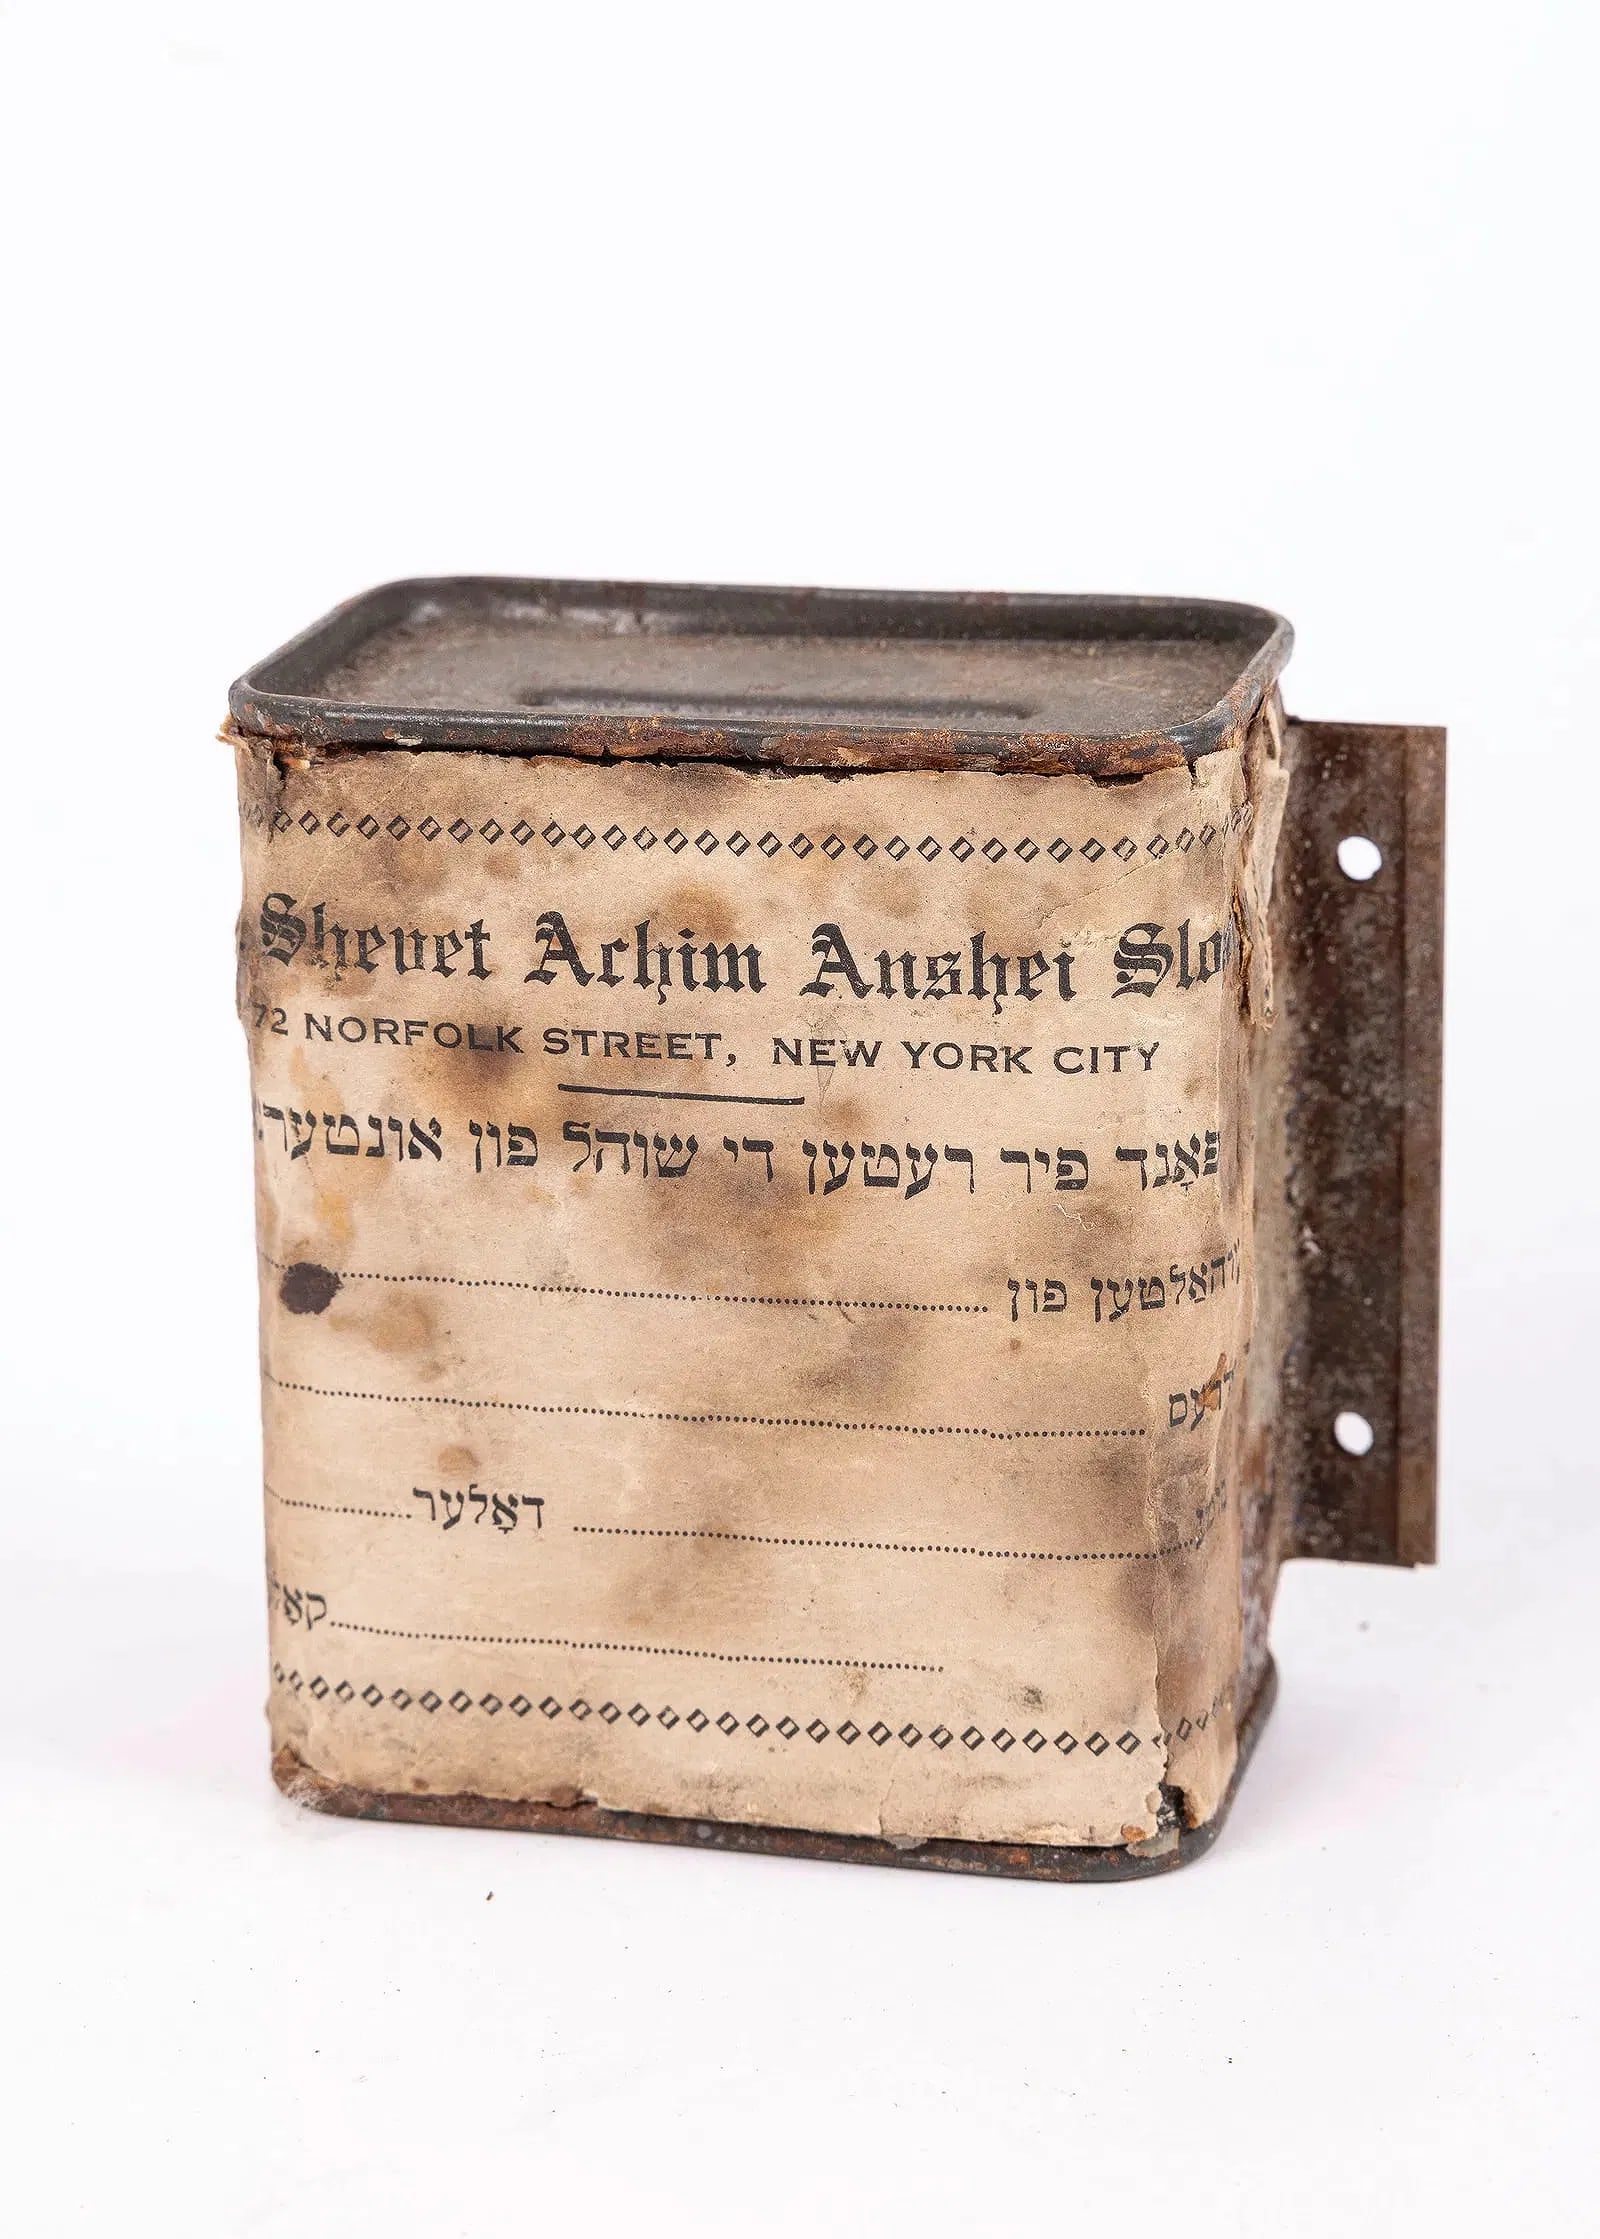 Shevet Achim Anshei Slo
72 NORFOLK STREET, NEW YORK CITY
פאָנד פיר רעטען די שוהל פון אונטער
האַלטען פון
דרעס
דאָלער
קאָל